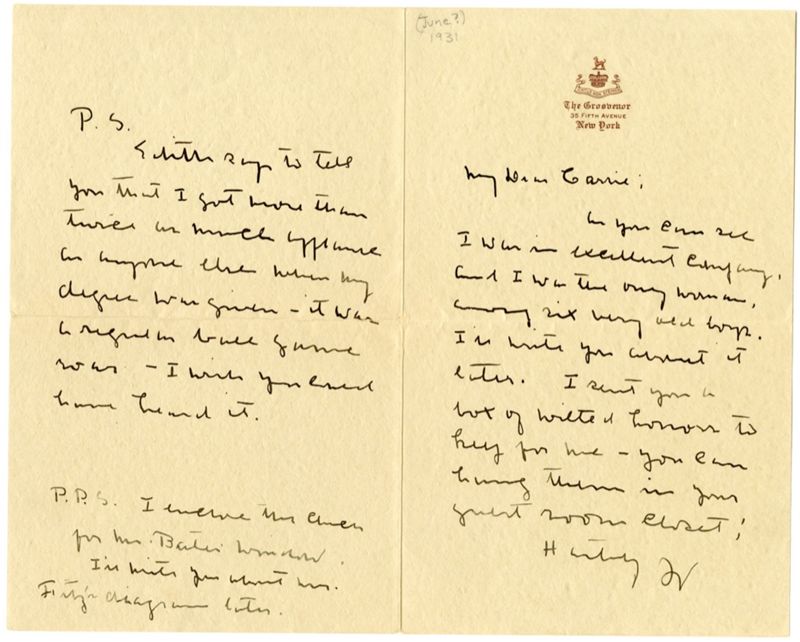 (June?)
1931
The Grosvenor
35 FIFTH AVENUE
New York
My Dear Carrie;
As you can see
I was in excellent company,
and I was the only woman,
among six very old boys.
I'll write you about it
later. I sent you a
box of wilted honors to
keep for me – you can
hang them in your
guest room closet!
Hastily W
P. S.
Edith says to tell
you that I got more than
twice as much applause
as anyone else when my
degree was given – it was
a regular ball game
roar – I wish you could
have heard it.
P.P.S. I enclose the check
for Mr. Bates' window.
I'll write you about Mrs.
diagram later.